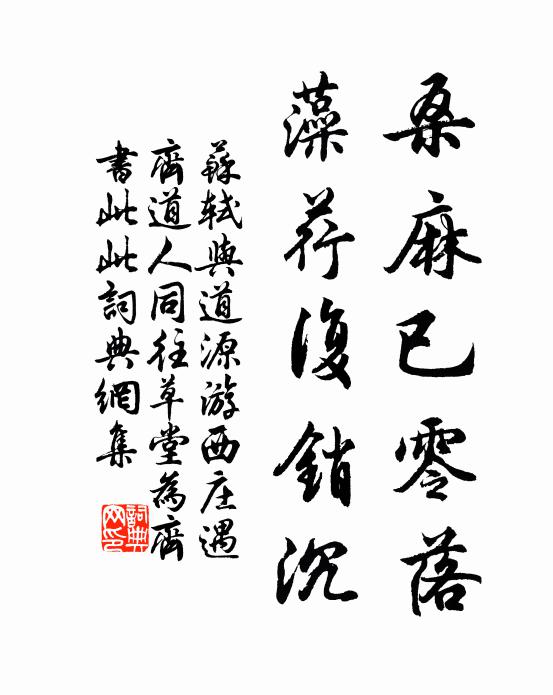 桑麻已零落
藻荇復銷沉
蘇軾與道源游西庄遇
齊道人同往草堂為齊
書此此詞典網集
詞典
网印